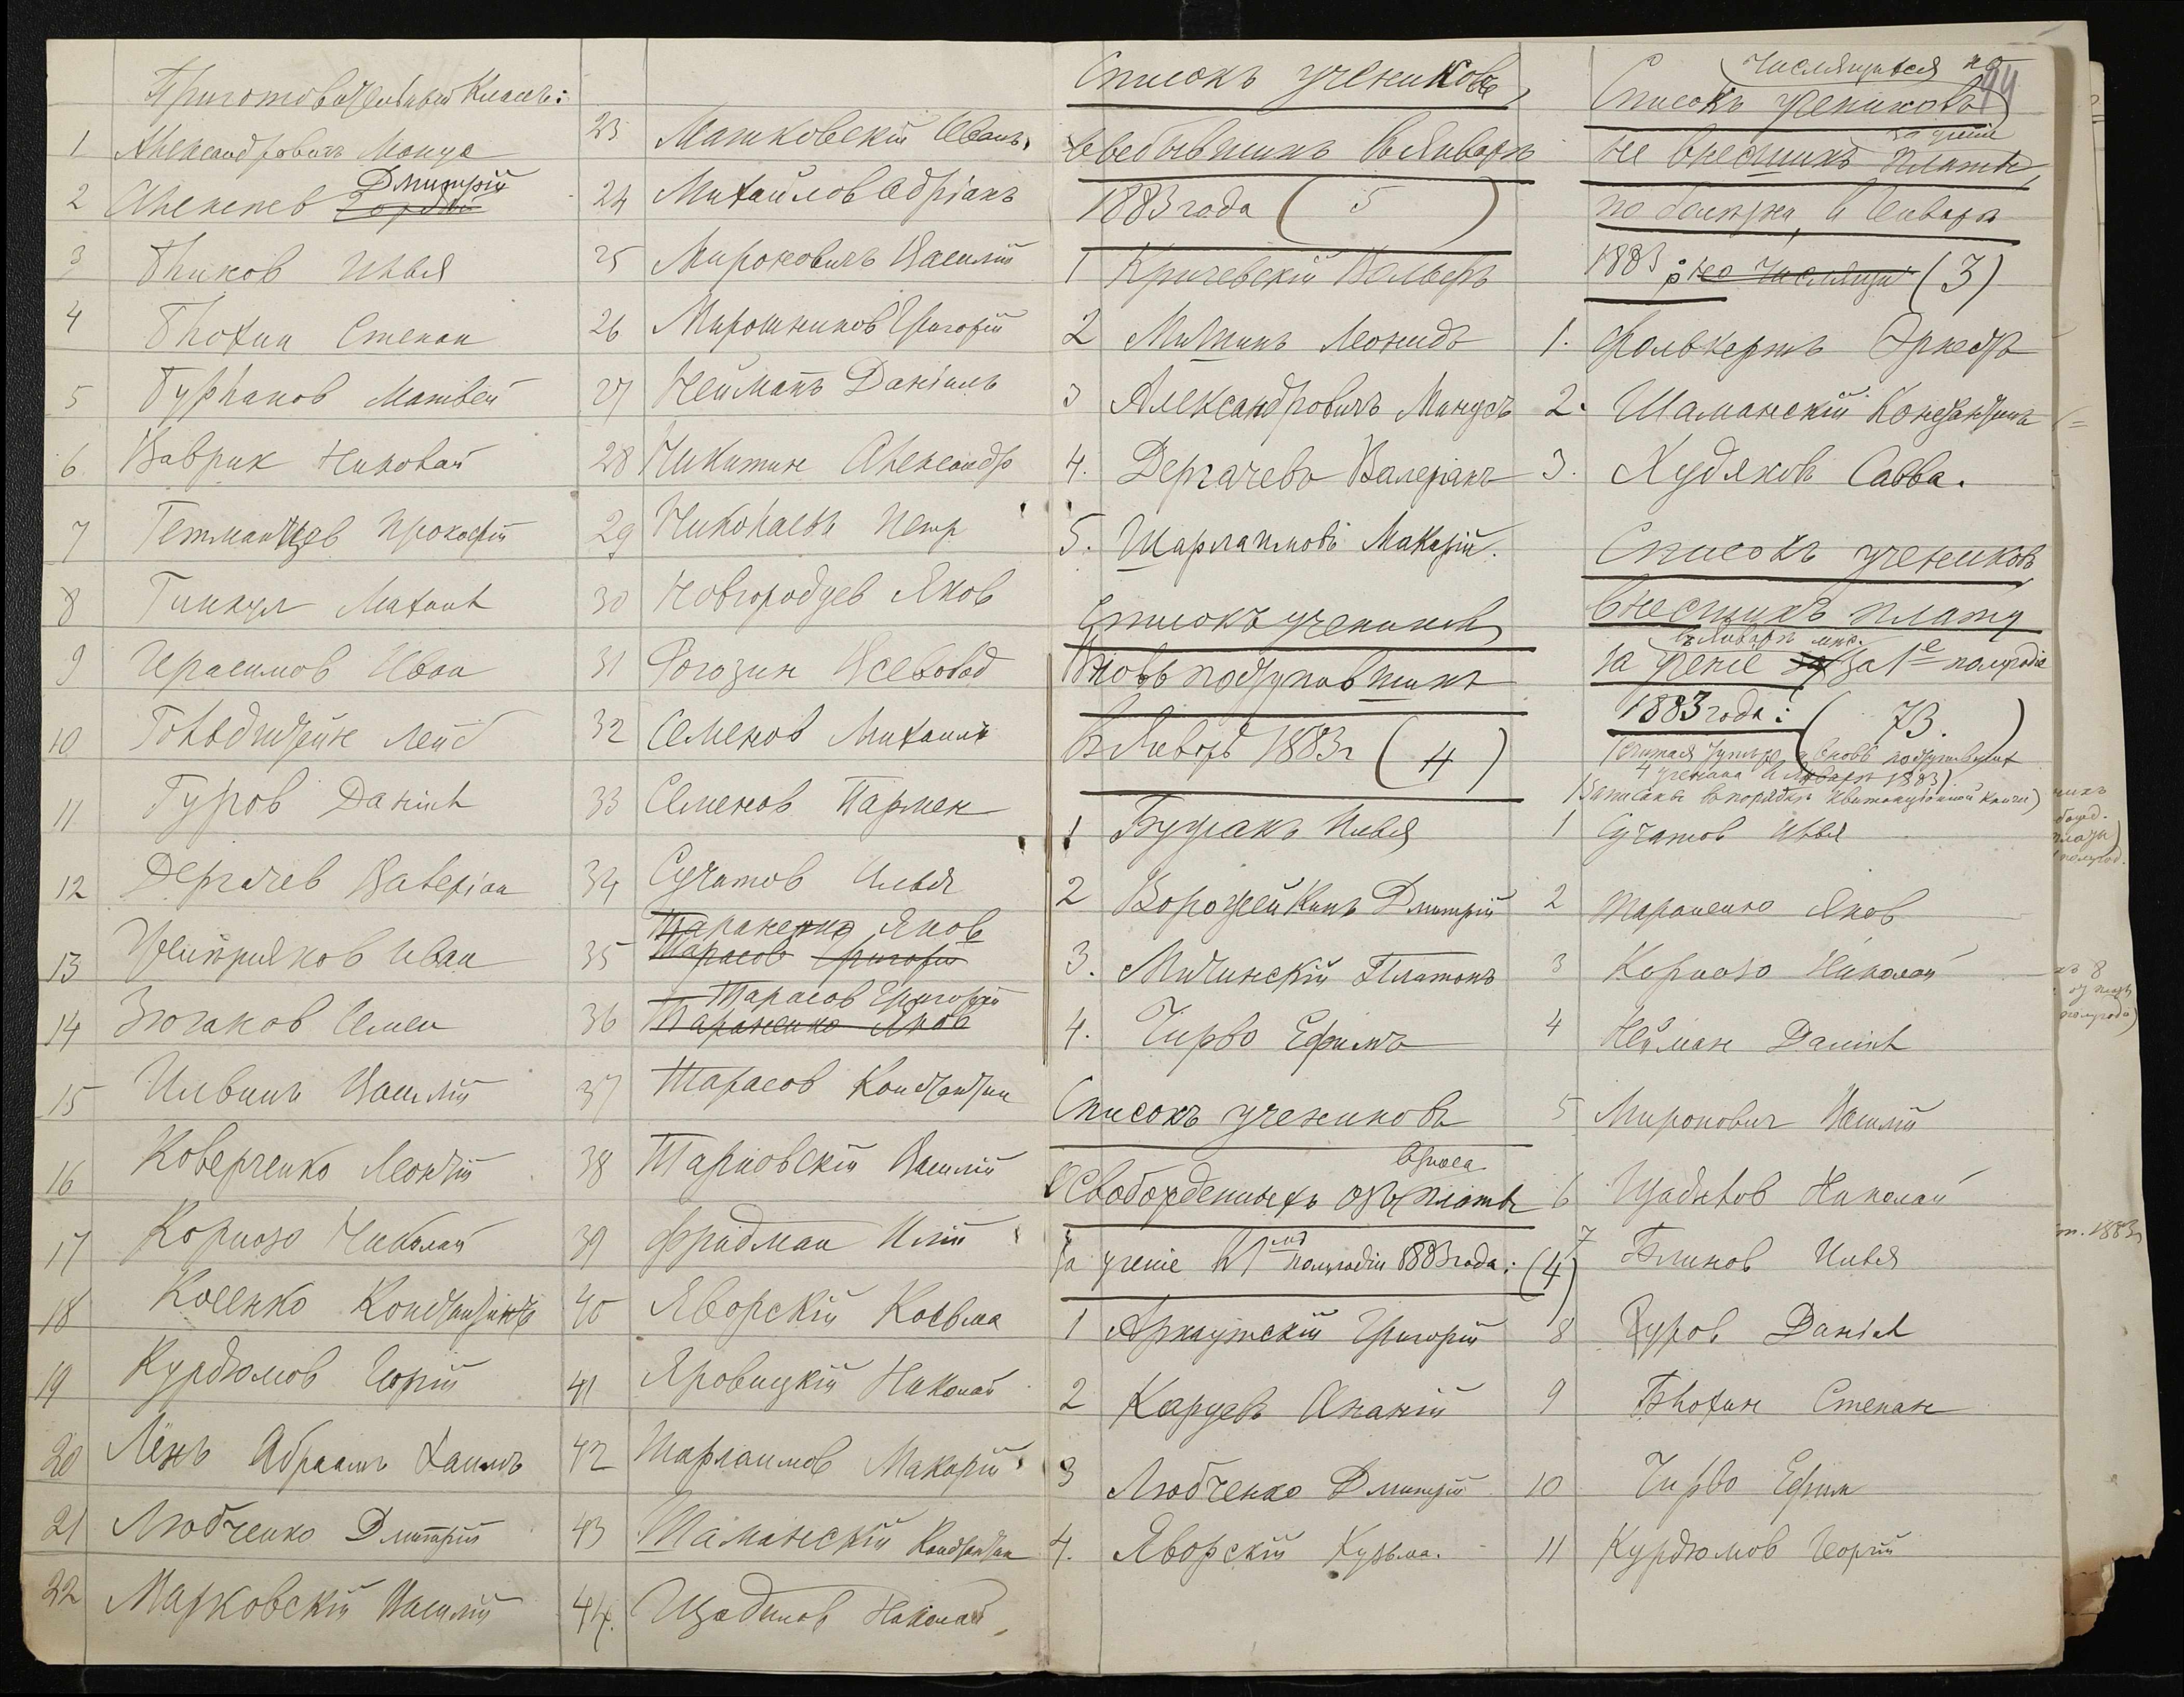 Приготовительный Классъ:
1 Александровичъ Монус
2 Алексеев Дмитрій
3 Блинов Илья
4 Блохин Степан
5 Бурлаков Матвей
6 Ваврик Николай
7 Гетманцев Прокофій
8 Гинкул Михаил
9 Герасимов Иван
10 Гольдштейн Лейб
11 Гуров Даніил
12 Дергачев Валеріан
13 Иван
14 Зюгаков Семен
15 Ильинъ Василій
16 Коверченко Леонтій
17 Корнозо Николай
18 Косенко Константинъ
19 Курдюмов Георгій
20 Лёнъ Абраамъ Хаимъ
21 Любченко Дмитрій
22 Марковскій Василій
23 Машковскій Иванъ
24 Михайлов Адріанъ
25 Мироновичъ Василій
26 Мирошников Григорій
27 Нейманъ Даніилъ
28 Никитин Александр
29 Николаевъ Петр
30 Новгородцев Яков
31 Рогозин Всеволод
32 Семенов Михаилъ
33 Семенов Пармен
34 Сучатов Илья
Тараненко Яков
35 Тарасов Григорій
Тарасов Григорій
36 Тараненко Яков
37 Тарасов Константин
38 Тарновскій Василій
39 Фридман Илій
40 Яворскій Косьма
41 Яровицкій Николай
42 Шарлаимов Макарій
43 Шаманскій Константин
44. Щадилов Николай
Списокъ учениковъ,
выбывшихъ въ Январѣ
1883 года (5)
1 Кричевскій Вольфъ
2 Митинъ Леонидъ
3 Александровичъ Манусъ
4. Дергачевъ Валеріанъ
5. Шарлаимовъ Макарій.
Списокъ учениковъ
Вновь поступившихъ
въ Январѣ 1883 г (4)
1 Бурланъ Илья
2 Ворожейкинъ Дмитрій
3. Мичинскій Платонъ
4. Чирво Ефимъ
Списокъ учениковъ
взноса
Освобожденныхъ отъ платы
за ученіе въ 1 полугодіи 1883 года: (4)
1 Арнаутскій Григорій
2 Карцевъ Ананій
3 Любченко Дмитрій
4. Яворскій Кузьма.
числящихся по
44
Списокъ учениковъ
за ученіе
не внесшихъ платы
по болѣзни, въ Январѣ
1883 г. (3)
1. Фолькертъ Эрнестъ
2. Шаманскій Константинъ
3. Худяковъ Савва.
Списокъ учениковъ
внесшихъ плату
въ Январѣ мѣс.
за ученіе за 1е полугодіе
1883 года: (73.)
(считая и вновь поступивших
4 ученика въ Январѣ 1883)
(Записаны въ порядкѣ квитанціонной книги)
1 Сучатов Илья
2 Тараненко Яков
3 Корнозо Николай
4 Нейман Даніил
5 Миронович Василій
6 Щадилов Николай
7 Блинов Илья
8 Гуров Даніил
9 Блохин Степан
10 Чирво Ефим
11 Курдюмов Георгій